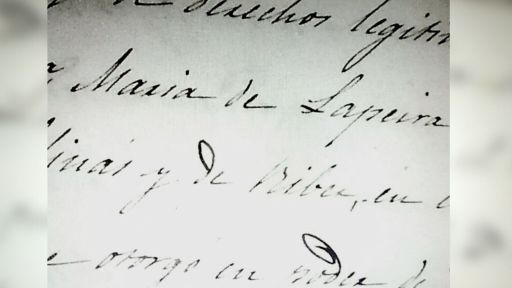 de derechos legitim
Maria de Lapeira
linas y de Ribu, en
e otorgo en poder de